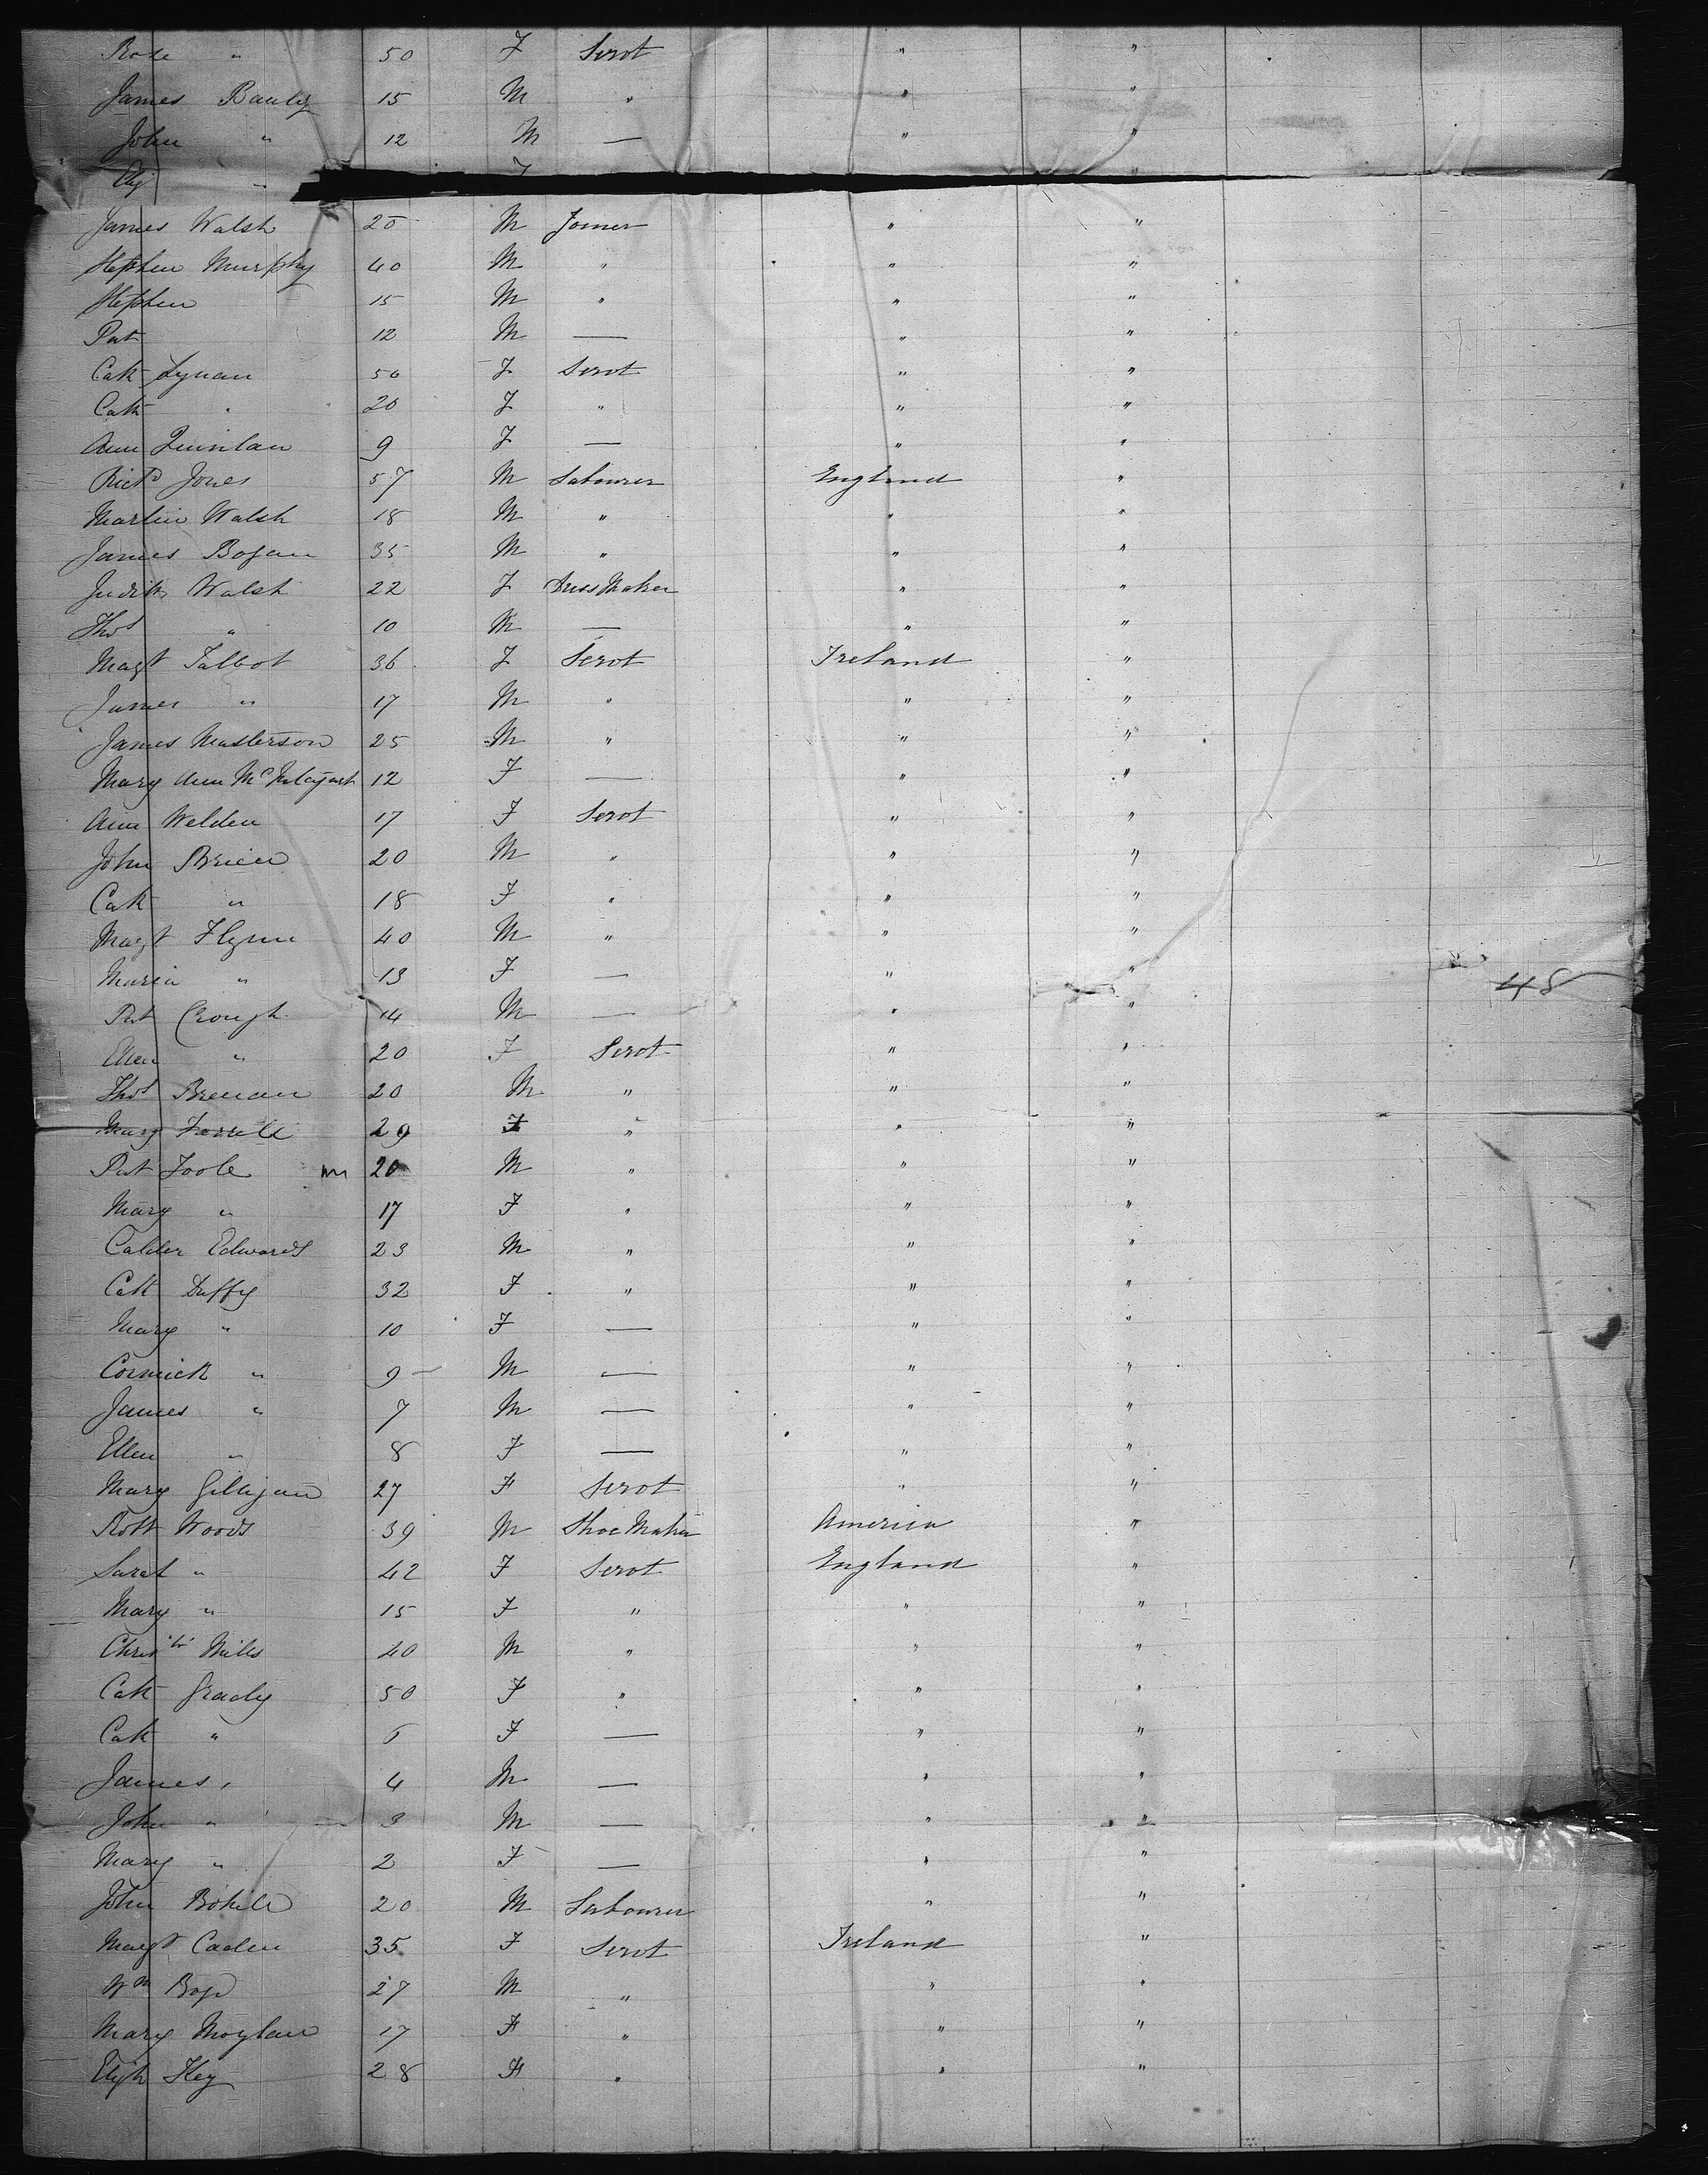 Rose " 50 F Servt " "
James Bauly 15 M " " "
John " 12 M — " "
Elij " F "
James Walsh 25 M Joiner " "
Stephen Murphy 40 M " " "
Stephen 15 M " " "
Pat 12 M — " "
Cath Lynan 50 F Servt " "
Cath " 20 F " " "
Ann Quinlan 9 F — " "
Richd Jones 57 M Labourer England "
Martin Walsh 18 M " " "
James Bogan 35 M " " "
Judith Walsh 22 F Dress Maker " "
Thos " 10 M — " "
Magt Talbot 36 F Servt Ireland "
James " 17 M " " "
James Masterson 25 M " " "
Mary Ann 12 F — " "
Ann Welden 17 F Servt " "
John Brien 20 M " " "
Cath " 18 F " " "
Magt Flynn 40 M " " "
Maria " 13 F — " "
48
Pat Crough 14 M — " "
Ellen " 20 F Servt " "
Thos Brenan 20 M " " "
Mary Farrell 29 F " " "
Pat Toole m 20 M " " "
Mary " 17 F " " "
Calder Edwards 23 M " " "
Cath Duffy 32 F " " "
Mary " 10 F — " "
Cormick " 9 M — " "
James " 7 M — " "
Ellen " 8 F — " "
Mary Gilligan 27 F Servt " "
Robt Woods 39 M Shoe Maker America "
Sarah " 42 F Servt England "
Mary " 15 F " " "
Mills 40 M " " "
Cath Grady 50 F " " "
Cath " 5 F — " "
James " 4 M — " "
John " 3 M — " "
Mary " 2 F — " "
John 20 M Labourer " "
Magt Caden 35 F Servt Ireland "
Wm 27 M " " "
Mary Moylan 17 F " " "
28 F " " "